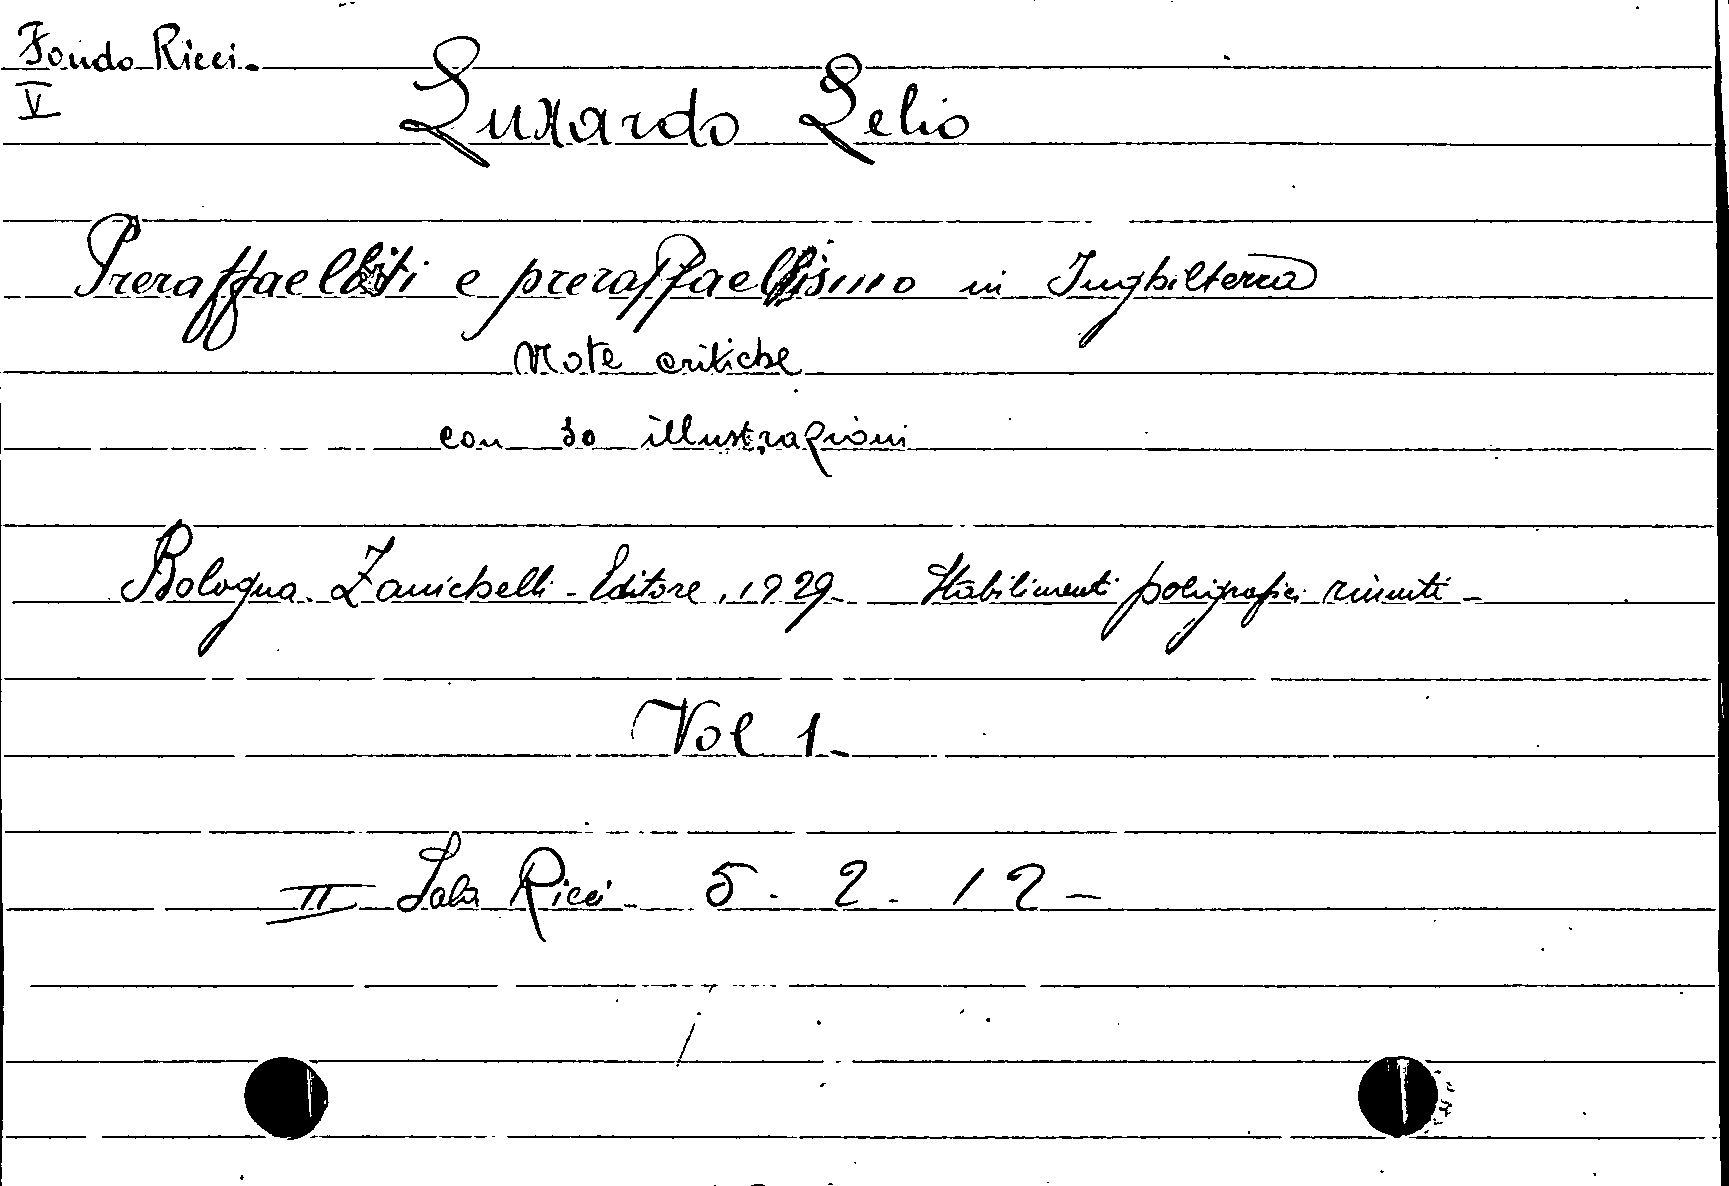 Fondo Ricci.
V
Luxardo Lelio
Preraffaelliti e preraffaellismo in Inghilterra
Note critiche
con 30 illustrazioni
Bologna. Zanichelli - Editore, 1929 - Stabilimenti poligrafici riuniti -
Vol 1 -
II Sala Ricci - 5 . 2 . 12 -